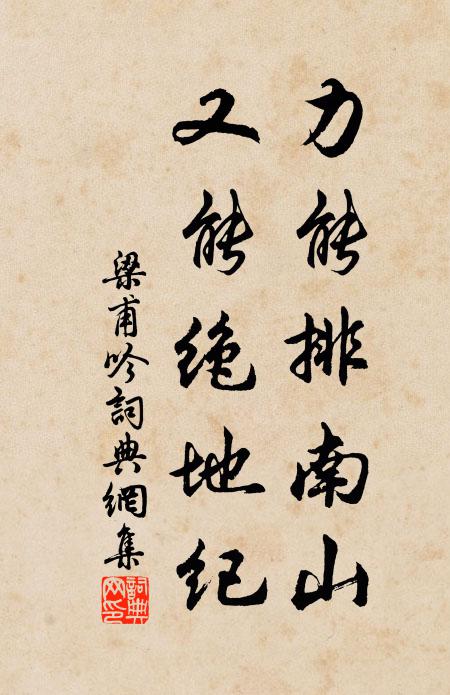 力能排南山
又能绝地纪
梁甫吟詞典網集
詞典网印